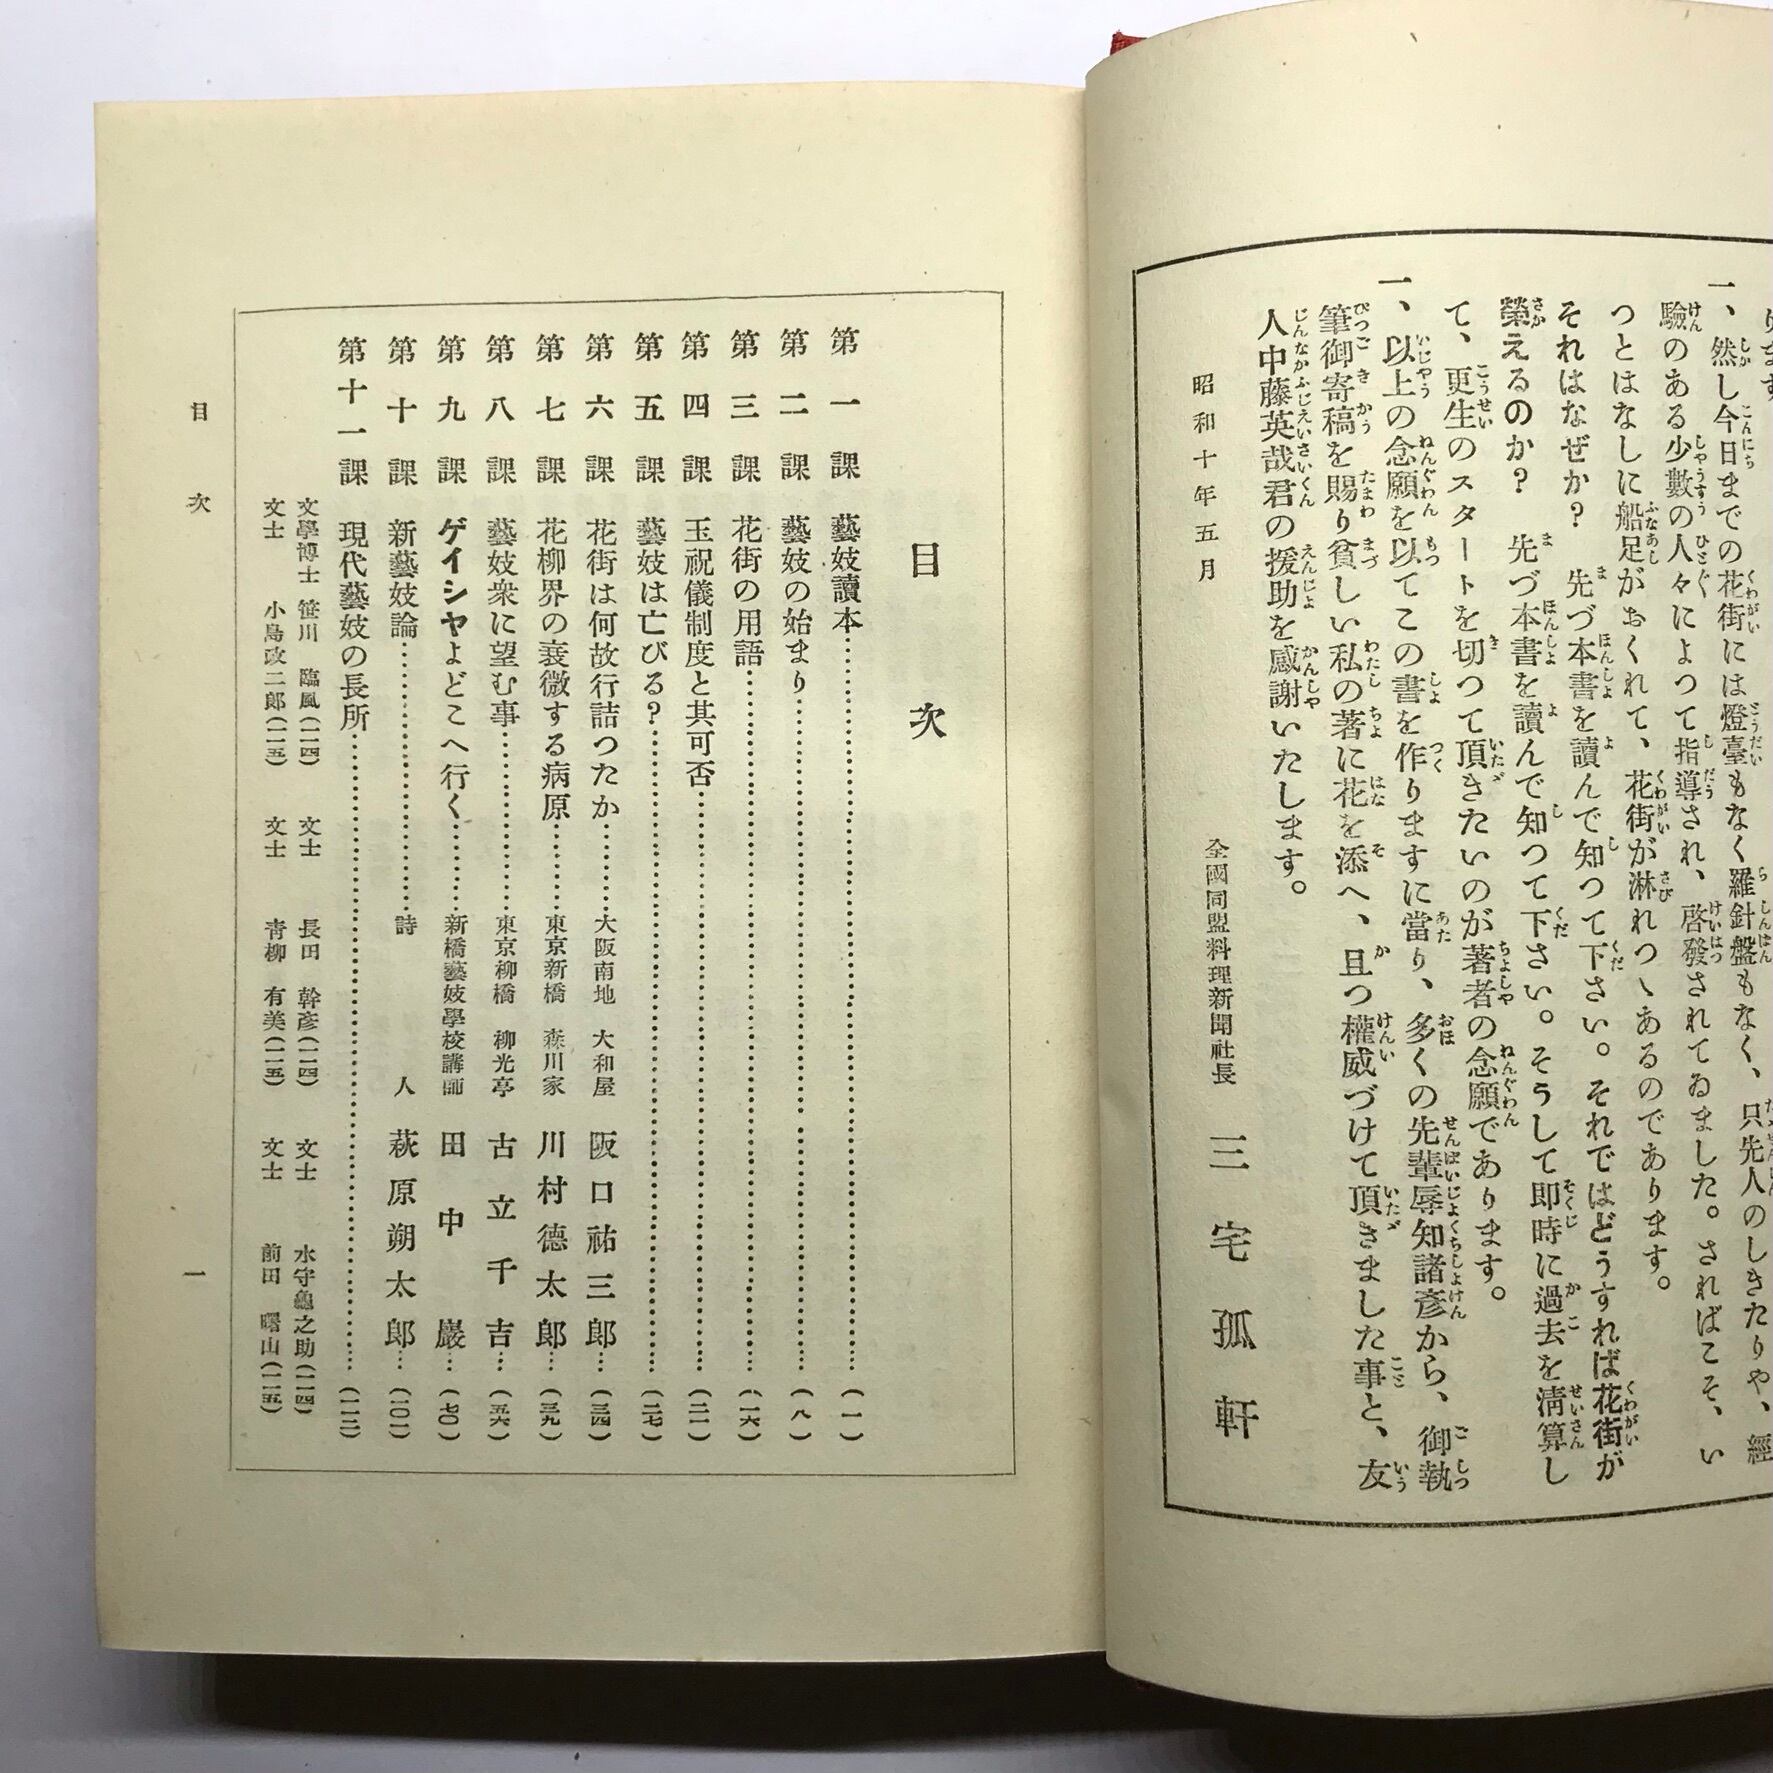 一、然し今日までの花街には燈臺もなく羅針盤もなく、只先人のしきたりや、經
驗のある少數の人々によつて指導され、啓發されてゐました。さればこそ、い
つとはなしに船足がおくれて、花街が淋れつゝあるのであります。
それはなぜか?　先づ本書を讀んで知つて下さい。それではどうすれば花街が
榮えるのか?　先づ本書を讀んで知つて下さい。そうして即時に過去を淸算し
て、更生のスタートを切つて頂きたいのが著者の念願であります。
一、以上の念願を以てこの書を作りますに當り、多くの先輩辱知諸彦から、御執
筆御寄稿を賜り貧しい私の著に花を添へ、且つ權威づけて頂きました事と、友
人中藤英哉君の援助を感謝いたします。
昭和十年五月
全國同盟料理新聞社長　三宅孤軒
目次
第一課　藝妓讀本…(一)
第二課　藝妓の始まり…(八)
第三課　花街の用語…(一六)
第四課　玉祝儀制度と其可否…(二一)
第五課　藝妓は亡びる?…(二七)
第六課　花街は何故行詰つたか…大阪南地　大和屋　阪口祐三郎…(三四)
第七課　花柳界の衰微する病原…東京新橋　森川家　川村德太郎…(三九)
第八課　藝妓衆に望む事…東京柳橋　柳光亭　古立千吉…(五六)
第九課　ゲイシヤよどこへ行く…新橋藝妓學校講師　田中巖…(七〇)
第十課　新藝妓論…詩人　萩原朔太郎…(一〇一)
第十一課　現代藝妓の長所…(一一三)
文學博士　笹川臨風(一一四)　文士　長田幹彦(一一四)　文士　水守龜之助(一一四)
文士　小島政二郎(一一五)　文士　靑柳有美(一一五)　文士　前田曙山(一一五)
目次　一